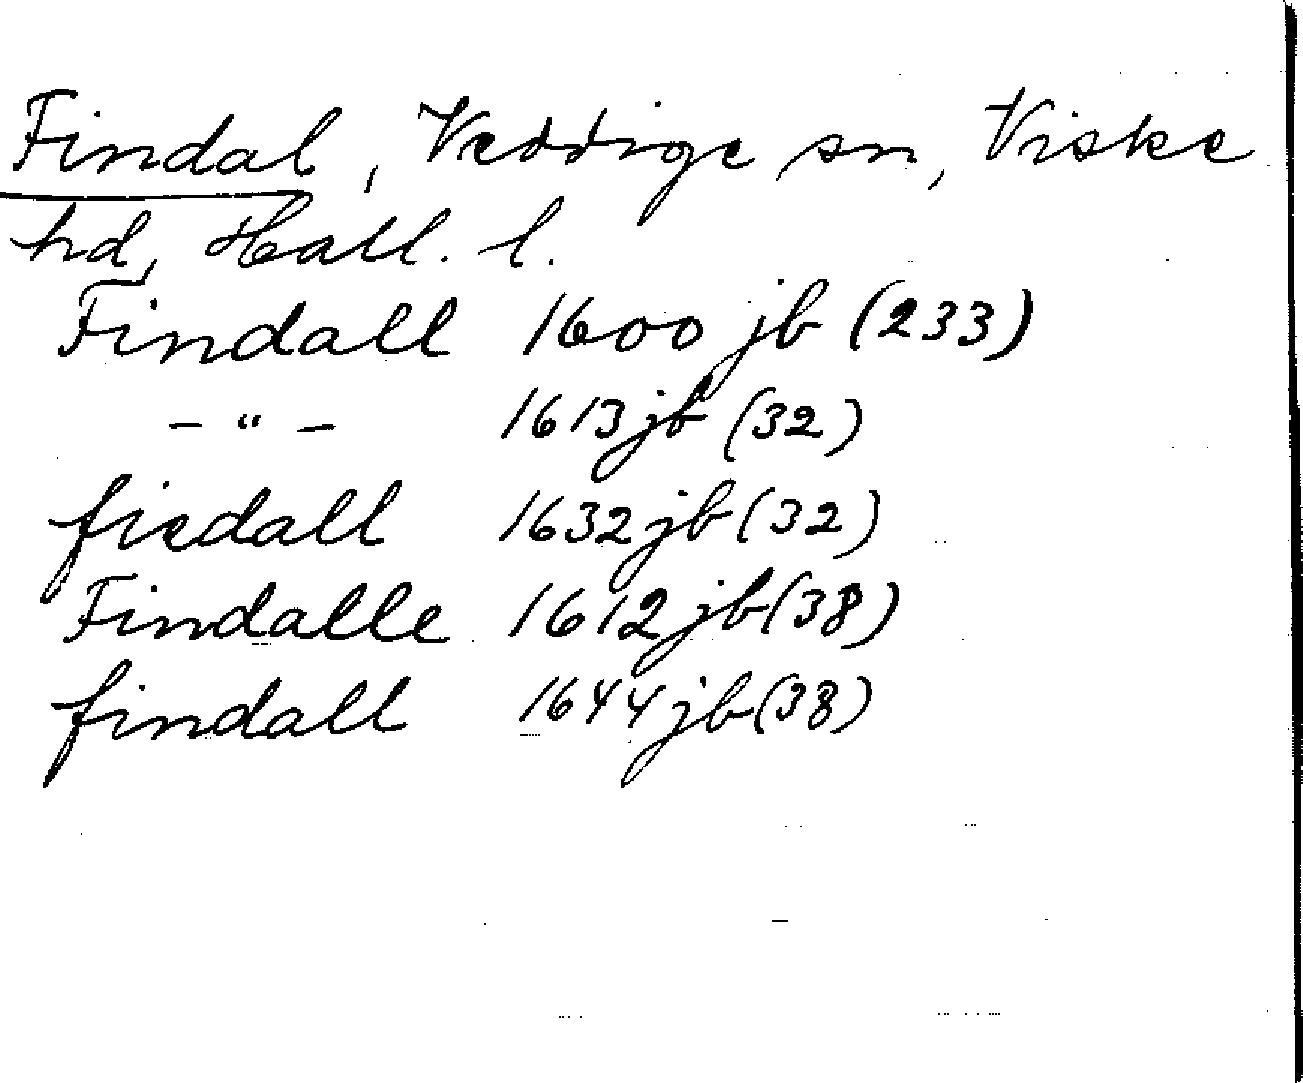 Findal, Veddige sn, Viske
hd, Hall. l.
Findall 1600 jb (233)
- " - 1613 jb (32)
fiedall 1632 jb (32)
Findalle 1612 jb (38)
findall 1644 jb (38)